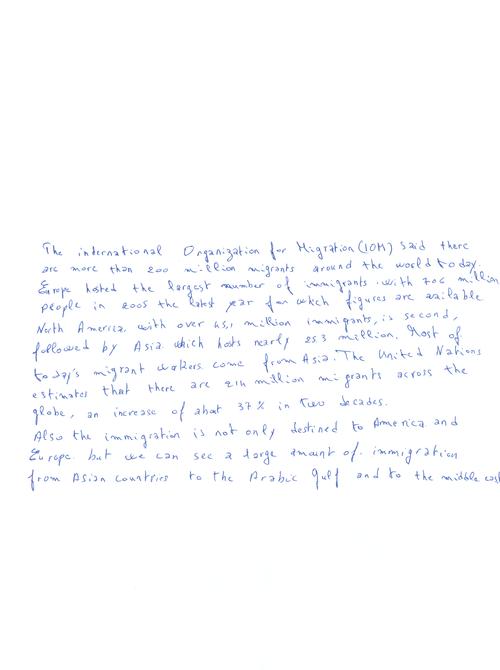 The international Organization for Migration (IOM) Said there
are more than 200 million migrants around the world today.
Europe hosted the largest number of immigrants. with 70.6 million
people in 2005 the latest year for which figures are available
North America, with over 45,1 million immigants, is second,
followed by Asia. which hosts nearly 25.3 million. Most of
today's migrant workers come from Asia. The United Nations
estimates that there are 214 million migrants across the
globe, an increase of abat 37% in two decades.
Also the immigration is not only destined to America and
Europe. but we can see a large amount of. immigration
from Asian countries to the Arabic Gulf and to the middle east